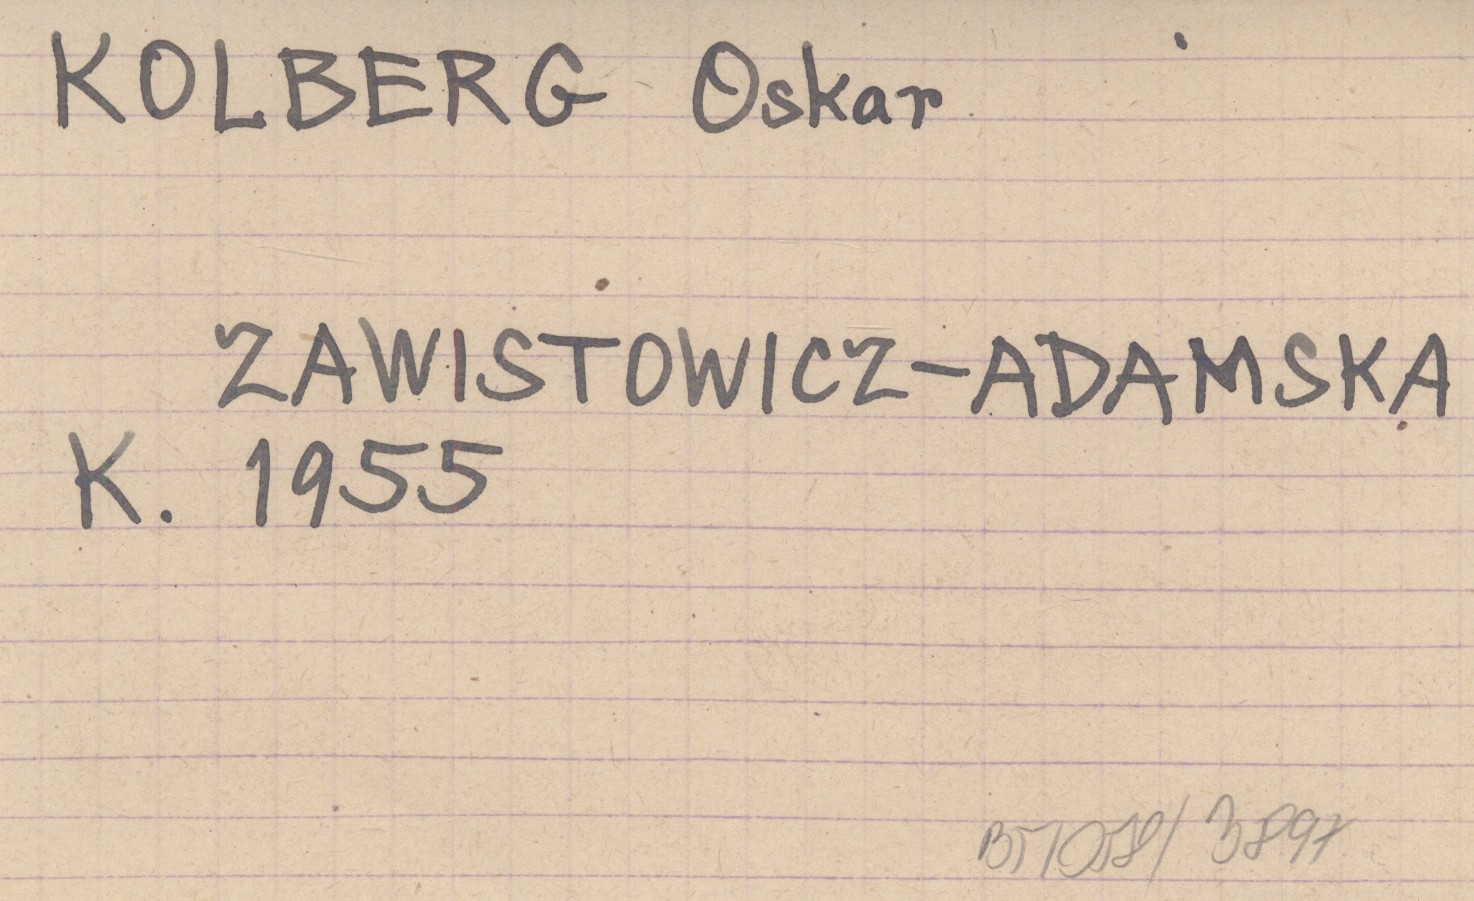 KOLBERG Oskar
ZAWISTOWICZ-ADAMSKA
K. 1955
3897